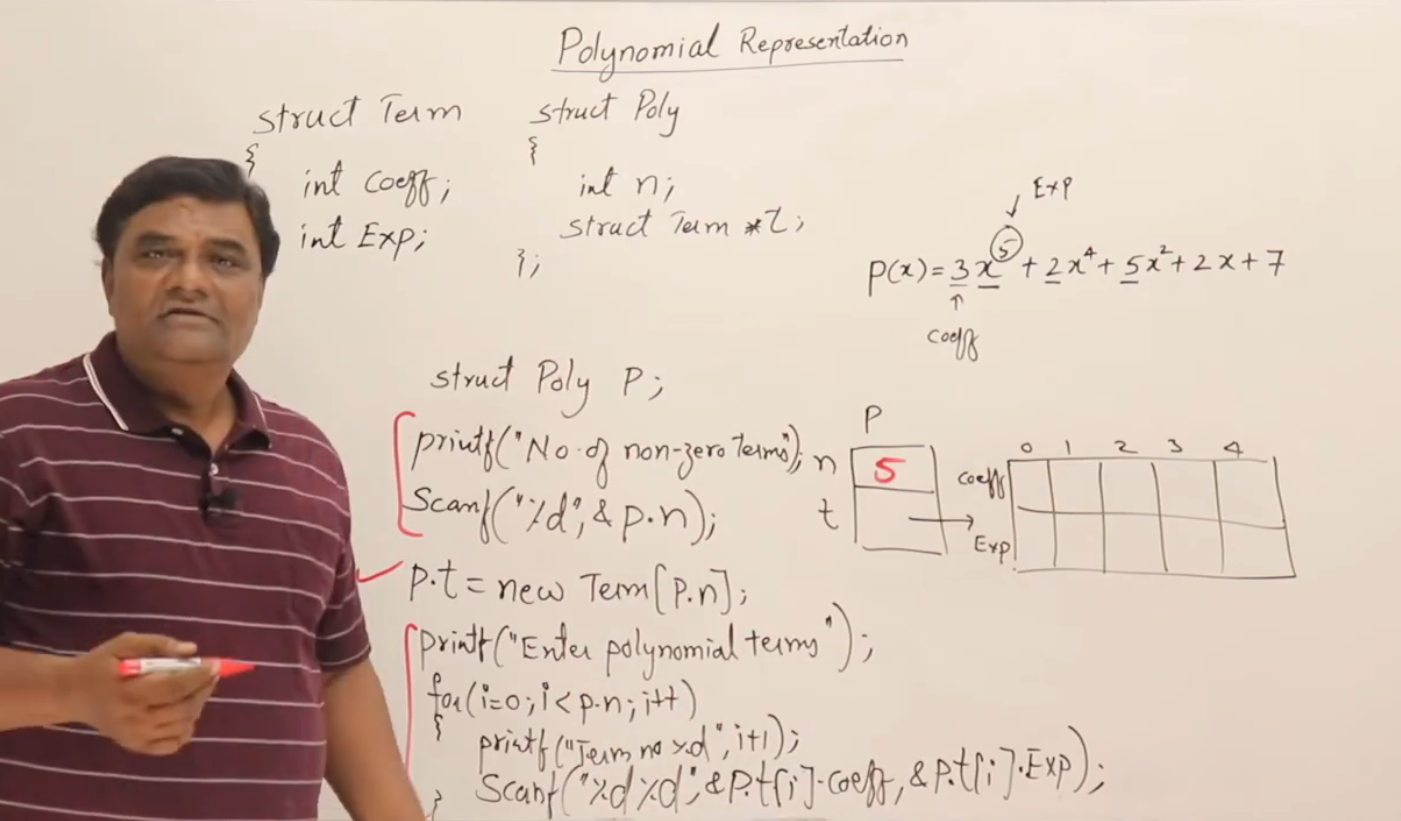 Polynomial Representation
struct Term
{
int coeff;
int Exp;
struct Poly
{
int n;
struct Term *t;
};
Exp
P(x) = 3x⁵ + 2x⁴ + 5x² + 2x + 7
coeff
struct Poly P;
printf("No. of non-zero Terms");
Scanf("%d", & p.n);
p.t = new Term[p.n];
printf("Enter polynomial terms");
for(i=0; i<p.n; i++)
{
printf("Term no %d", i+1);
Scanf("%d%d", & p.t[i].coeff, & p.t[i].Exp);
}
P
n 5
t
0 1 2 3 4
coeff
Exp